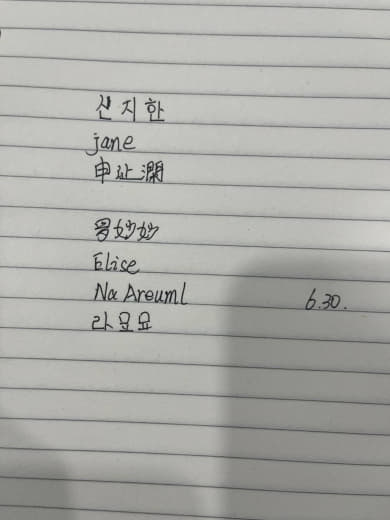 신지한
jane
申止澖
罗妙妙
Elise
Na Areuml 6.30.
라묘묘